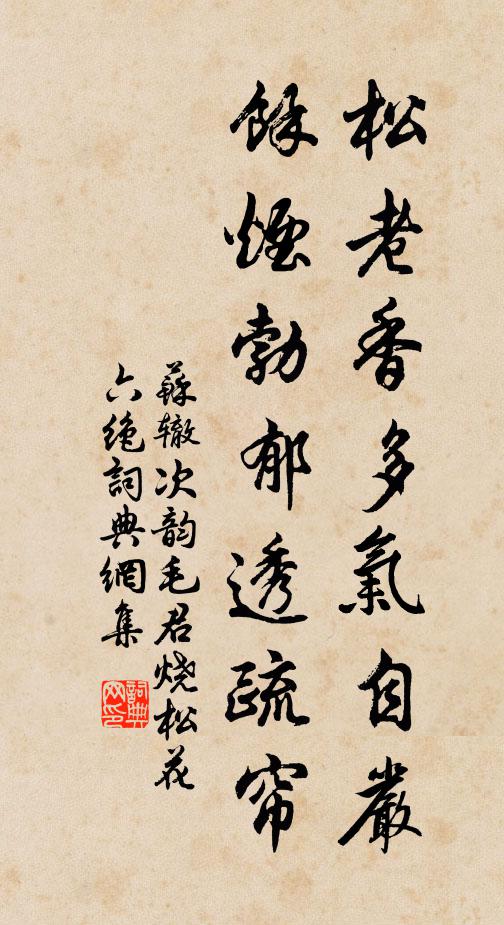 松老香多氣自嚴
餘煙勃郁透疏帘
蘇辙次韵毛君烧松花
六绝詞典網集
詞典
网印